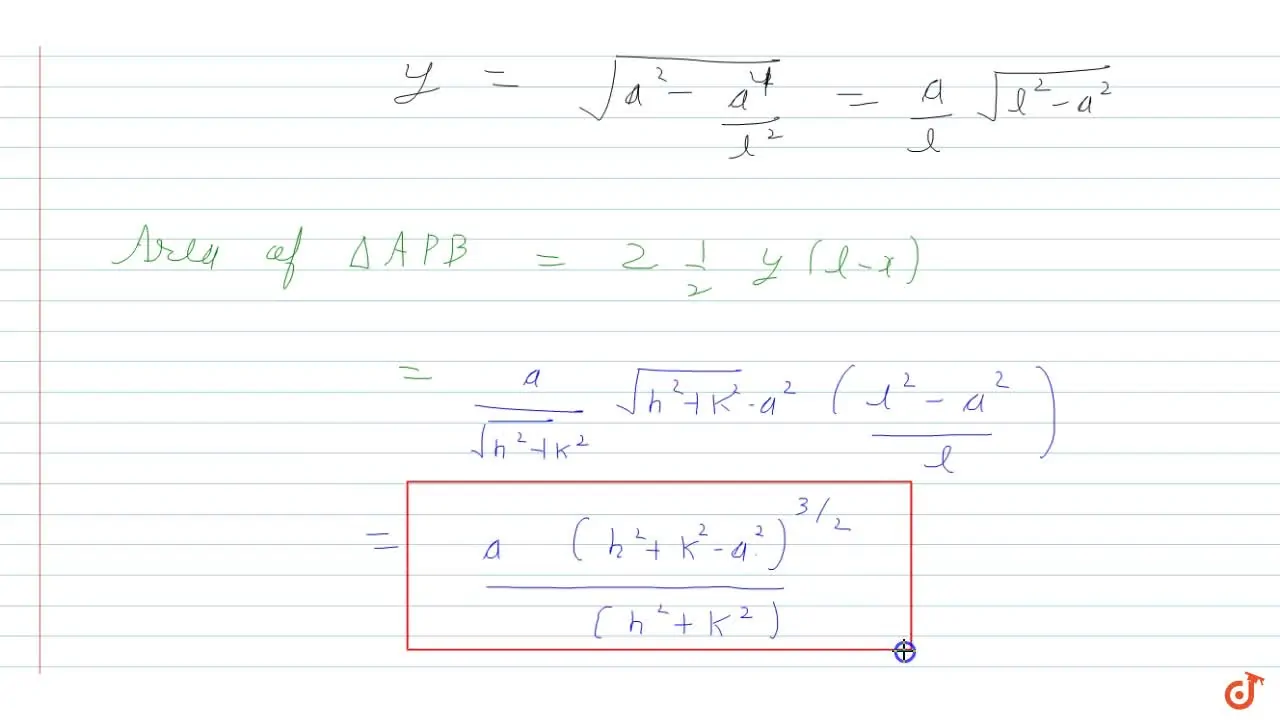 y = √(a² - a⁴/l²) = a/l √(l² - a²)
Area of ΔAPB = 2 1/2 y (l-x)
= a/√(h²+k²) √(h²+k²-a²) ((l² - a²)/l)
= a (h²+k²-a²)^3/2 / (h²+k²)